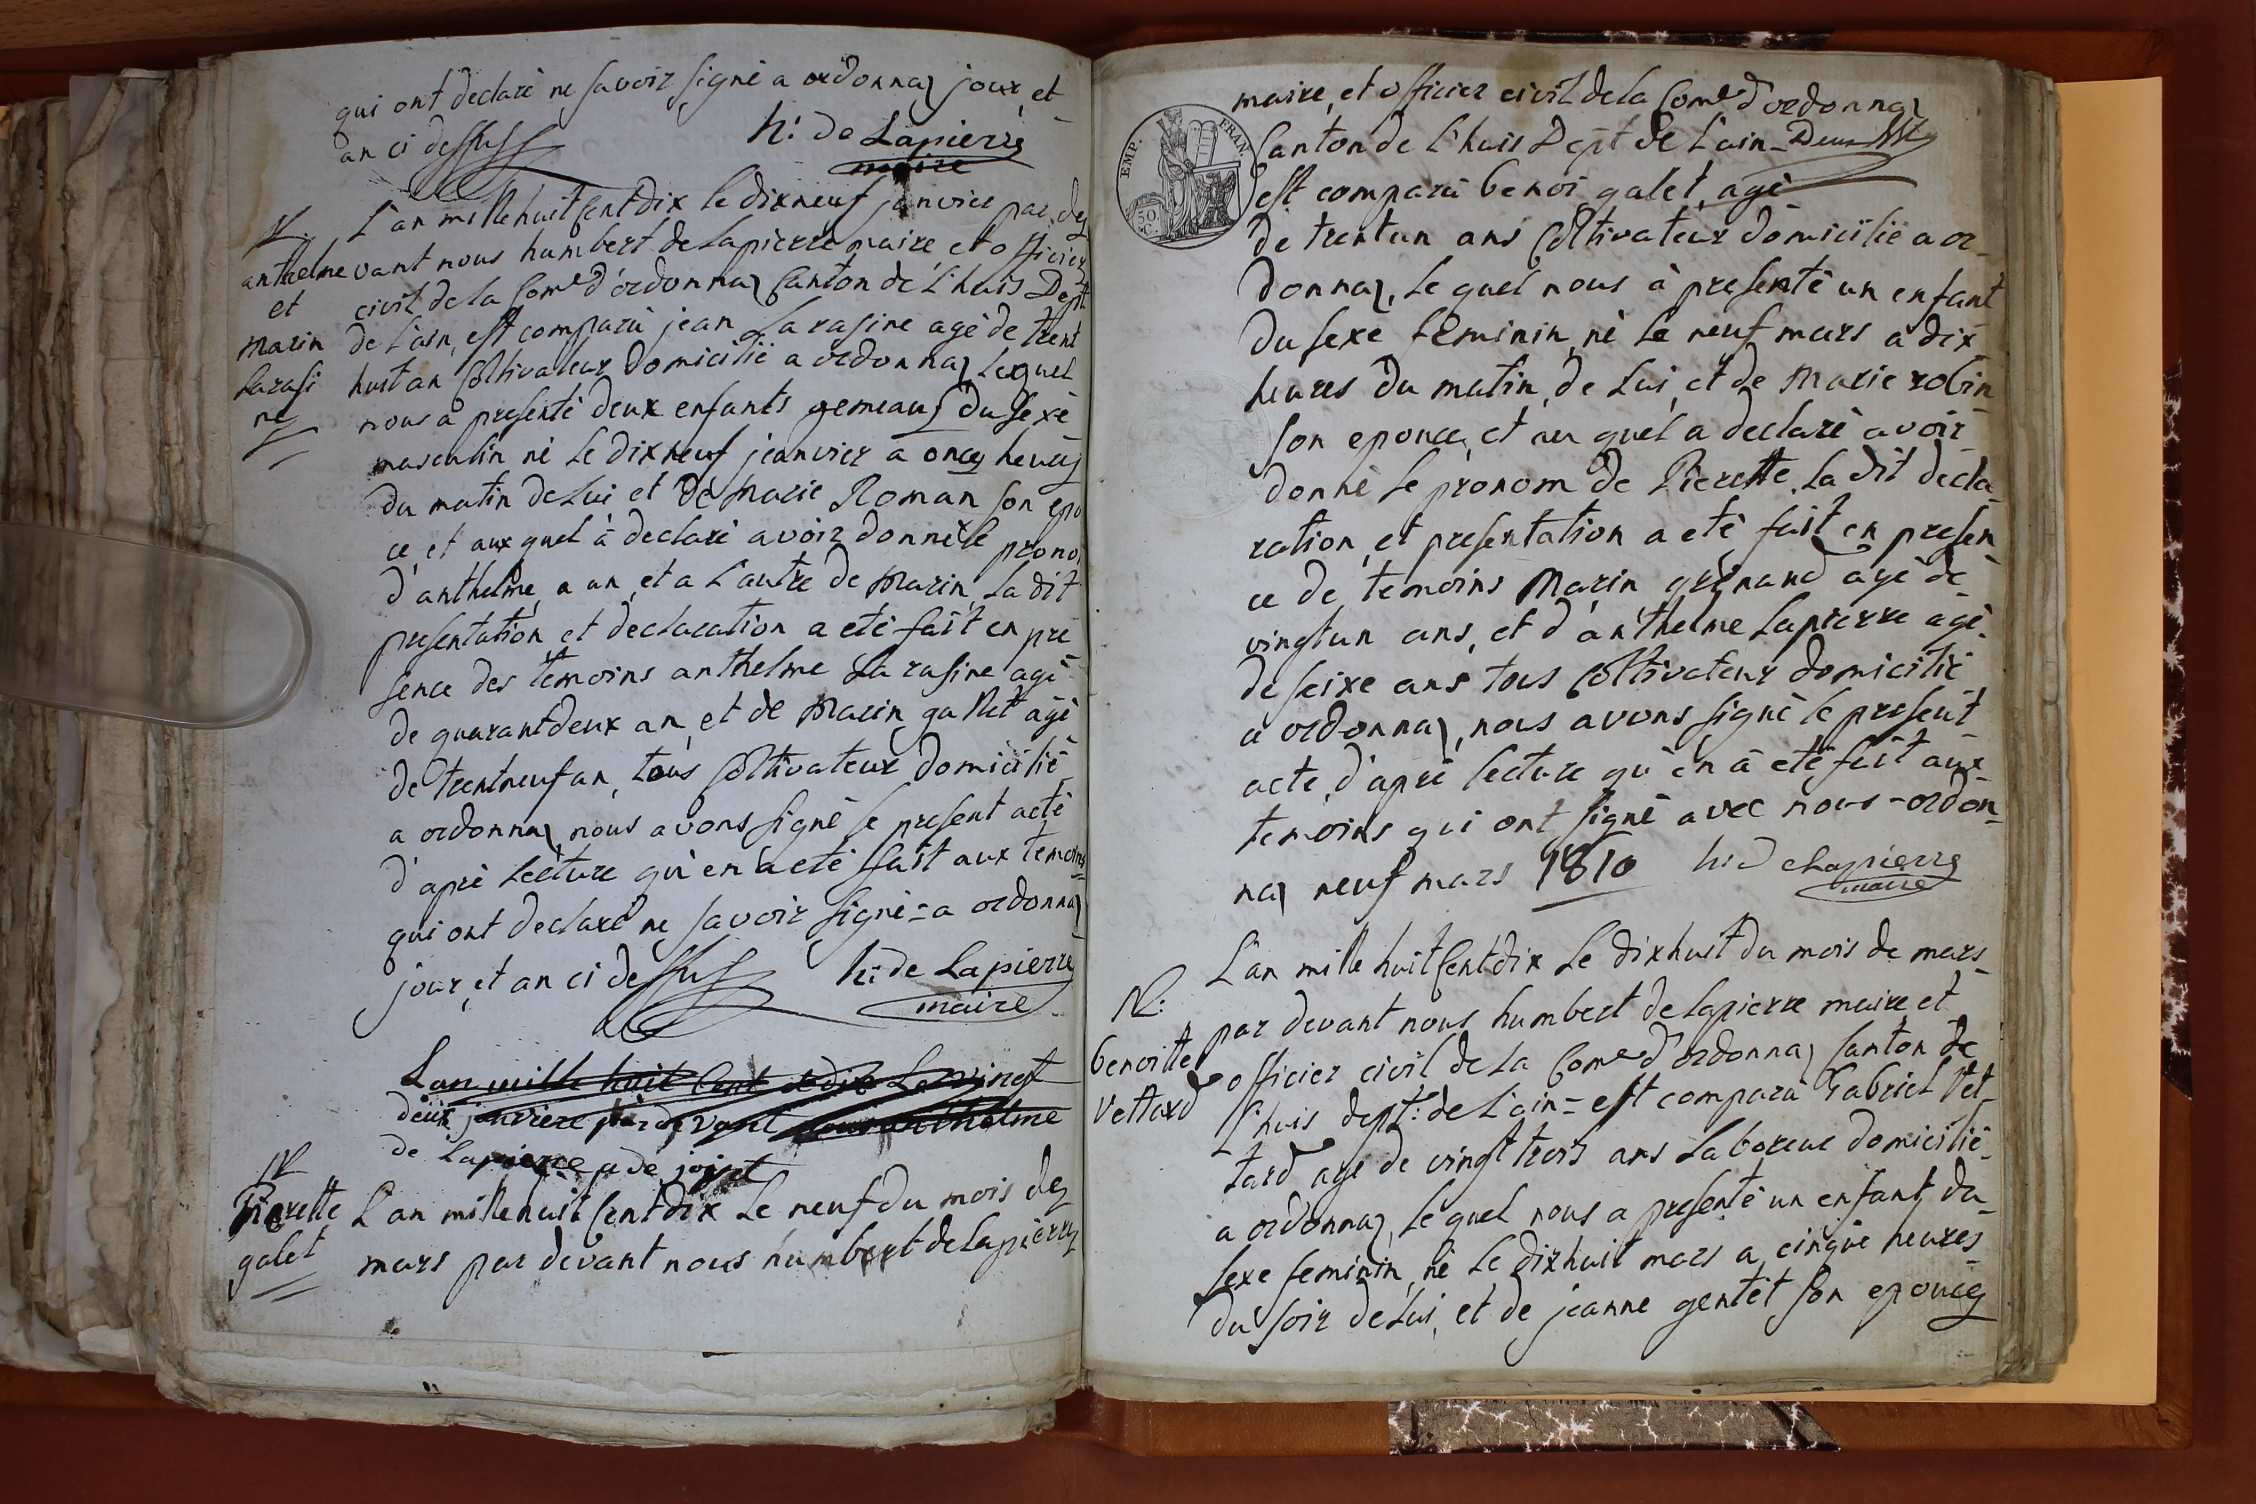 qui ont declaré ne savoir signé a ordonnaz jour, et
an ci dessus
h: de Lapierre
maire
N.
anthelme
et
marin
Larasi
ne
L'an mille huit Cent dix le dixneuf janvier par de
vant nous humbert de Lapierre maire, et officier
civil de la Come d'ordonnaz Canton de L'huis Dept
de L'ain, est comparu jean La rasine agé de trent
huit an Coltivateur domicilié a ordonnaz Lequel
nous à presenté deux enfants gemeaux du sexe
masculin né Le dixneuf jeanvier a once heures
du matin de Lui et de Marie Roman son epou
ce, et aux quel à declaré avoir donné le prono
d'anthelme a un, et a L'autre de Marin, La dit
presentation et declaration a eté fait en pre
sence des temoins anthelme La rasine agé
de quarantdeux an, et de Marin gallet agé
de trentneuf an, tous Coltivateur domicilié
a ordonnaz, nous avons signé le present acte
d'apré Lecture qu'en a eté fait aux temoins
qui ont declaré ne savoir signé = a ordonnaz
jour, et an ci dessus
h: de Lapierre
maire
L'an mille huit Cent et dix Le vingt
deux janviere par devant nous anthelme
de Lapierre
N
Pierette
galet
L'an mille huit Cent dix Le neuf du mois de
mars par devant nous humbert de Lapierre
maire, et officier civil de la Come d'ordonnaz
EMP. FRAN.
50 C.
Canton de L'huis Dept de L'ain
est comparu benoi galet, agé
de trentun ans Coltivateur domicilié a or
donnaz, Le quel nous à presenté un enfant
du sexe feminin, né Le neuf mars a dix
heures du matin, de Lui, et de Marie robin
son epouce, et au quel a declaré avoir
donné Le pronom de Pierette, La dit decla
ration, et presentation a eté fait en presen
ce de temoins Marin grinand agé de
vingtun ans, et d'anthelme Lapierre agé
de seixe ans tous Coltivateur domicilié
a ordonnaz, nous avons signé le present
acte, d'apré lecture qu'en à eté fait aux
temoins qui ont signé avec nous - ordon
naz neuf mars 1810
h: de Lapierre
maire
N:
benoitte
Vettard
L'an mille huit Cent dix Le dixhuit du mois de mars
par devant nous humbert de Lapierre maire et
officier civil de La Come d'ordonnaz Canton de
L'huis dept: de L'ain = est comparu Gabriel Vet
tard agé de vingt trois ans Laboreur domicilié
a ordonnaz, Le quel nous a presenté un enfant du
sexe feminin, né Le dixhuit mars a cinque heures
du soir de Lui, et de jeanne gentet son epouce